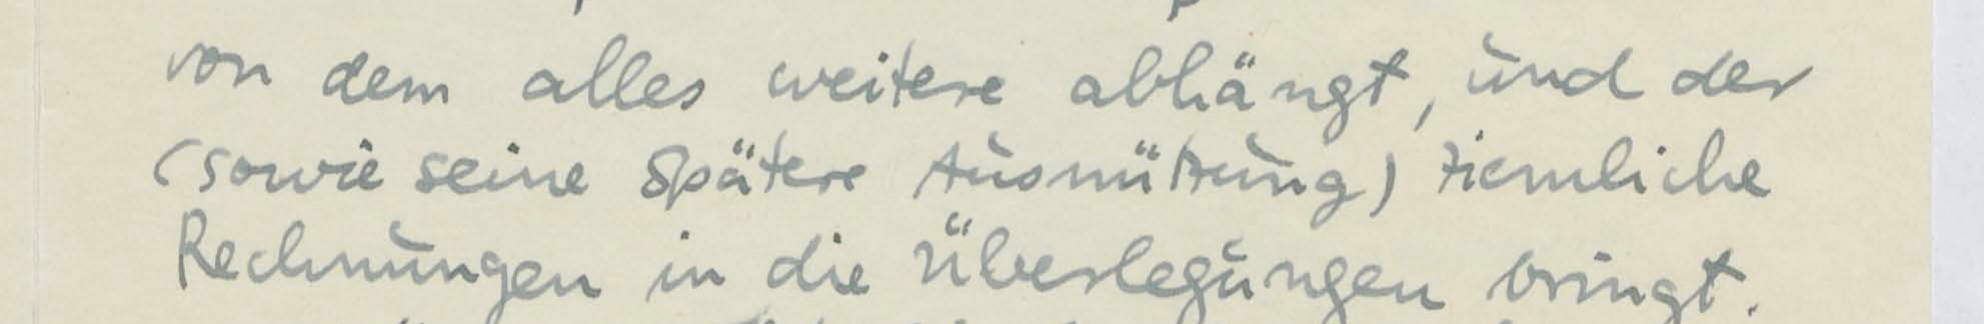 von dem alles weitere abhängt, und der
(sowie seine spätere Ausnützung) ziemliche
Rechnungen in die Überlegungen bringt.